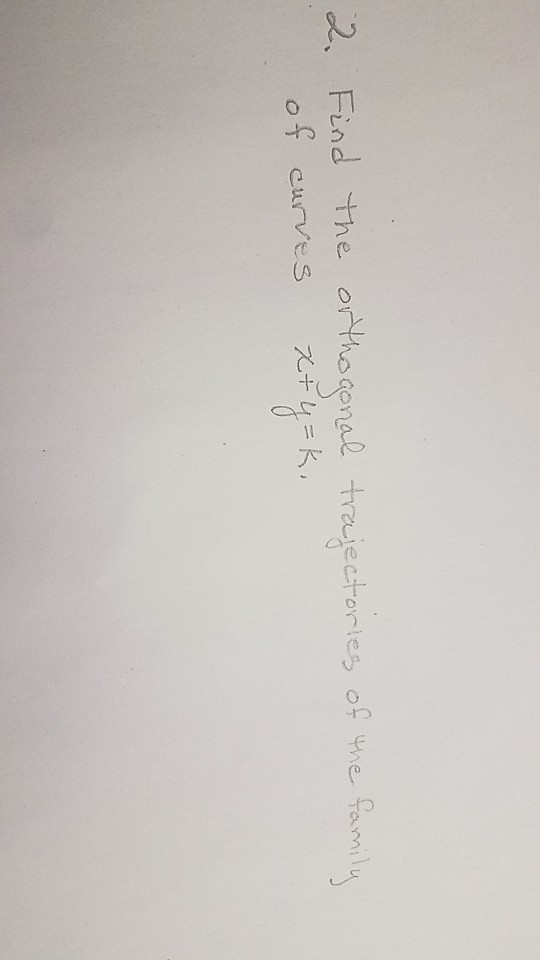 2. Find the orthogonal trajectories of the family
of curves x+y=k.